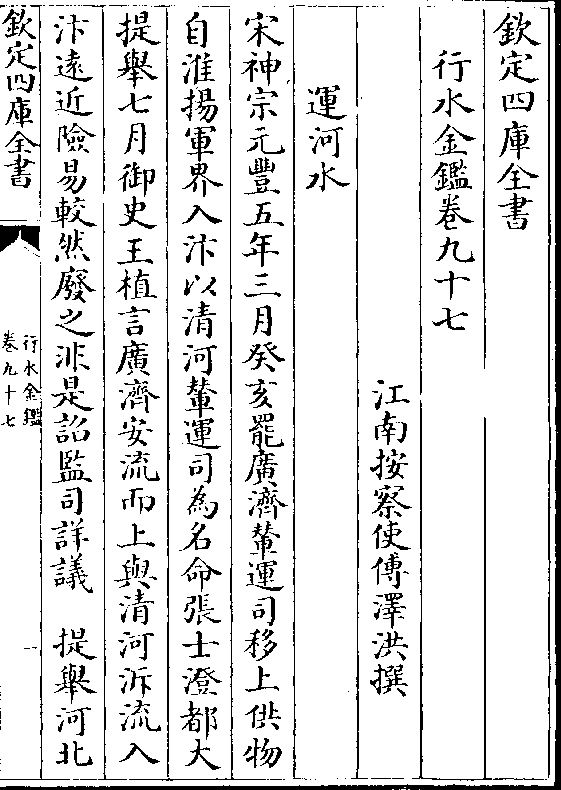 欽定四庫全書
行水金鑑卷九十七
江南按察使傅澤洪撰
運河水
宋神宗元豐五年三月癸亥罷廣濟輦運司移上供物
自淮揚軍界入汴以清河輦運司為名命張士澄都大
提舉七月御史王植言廣濟安流而上與清河泝流入
汴遠近險易較然廢之非是詔監司詳議　提舉河北
欽定四庫全書
行水金鑑
卷九十七
一